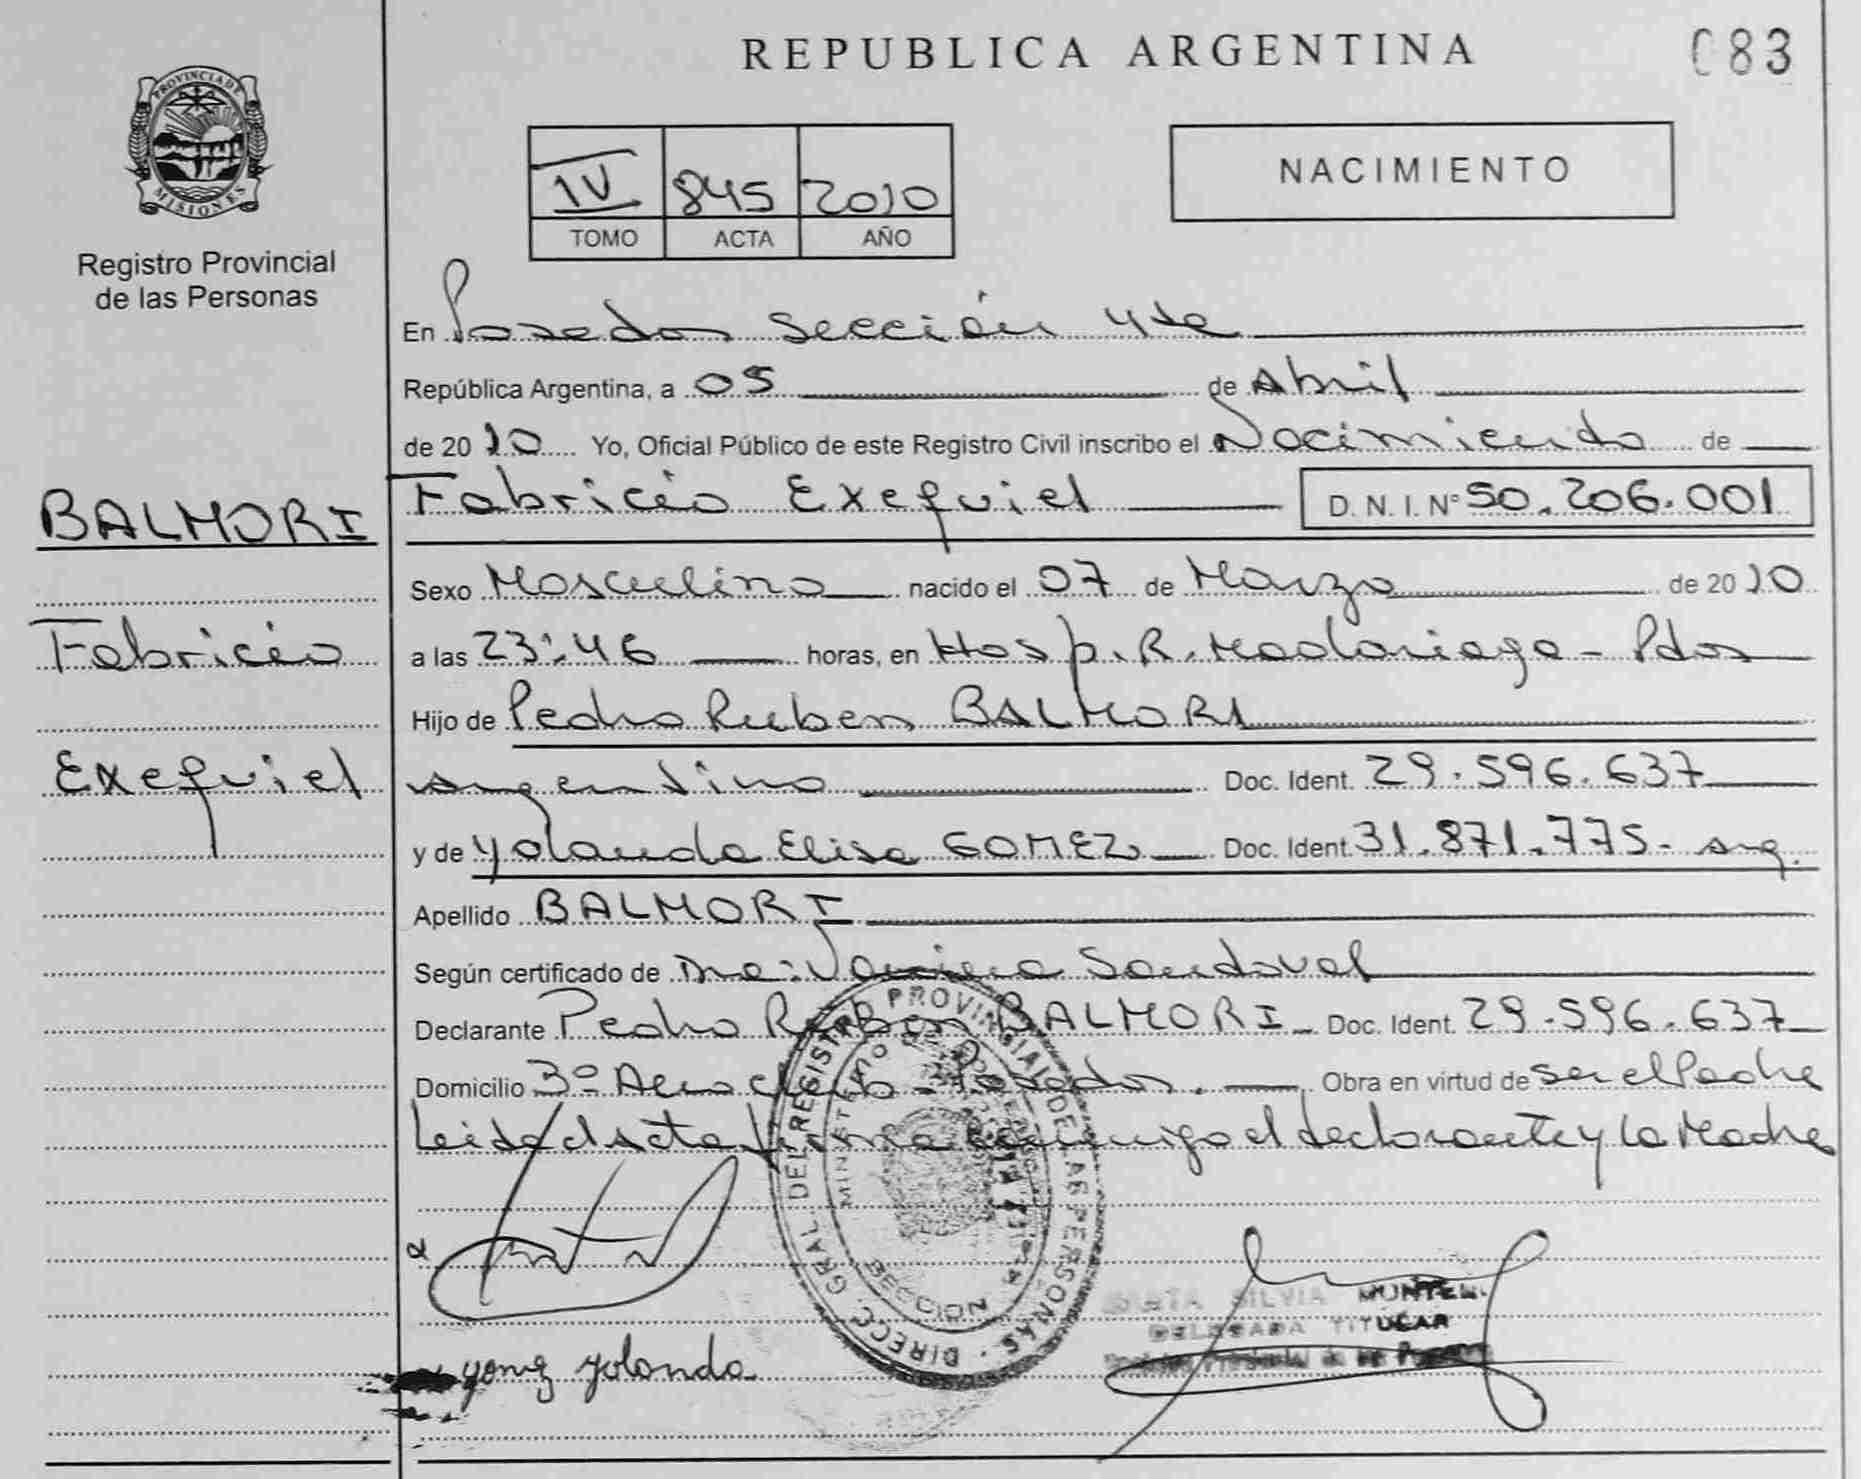 REPUBLICA ARGENTINA
083
PROVINCIA DE MISIONES
Registro Provincial
de las Personas
IV 845 2010
TOMO ACTA AÑO
NACIMIENTO
En Posadas Sección 4ta
República Argentina, a 05 de Abril
de 2010 Yo, Oficial Público de este Registro Civil inscribo el Nacimiento de
BALMORI
Fabricio
Exequiel
Fabricio Exequiel D. N. I. Nº 50.206.001
Sexo Masculino nacido el 07 de Marzo de 2010
a las 23:46 horas, en Hosp. R. Madariaga - Pdas
Hijo de Pedro Ruben BALMORI
argentino Doc. Ident. 29.596.637
y de Yolanda Elisa GOMEZ Doc. Ident. 31.871.775 - arg.
Apellido BALMORI
Según certificado de Dra: Sandoval
Declarante Pedro Ruben BALMORI Doc. Ident. 29.596.637
Domicilio 3º Aero club - Posadas. Obra en virtud de ser el Padre
Leida el Acta firma conmigo el declarante y la Madre
DIRECC. GRAL. DEL REGISTRO PROVINCIAL DE LAS PERSONAS
MINISTERIO DE
SECCION
SILVIA
TITULAR
Registro Provincial de las Personas
gomez yolanda